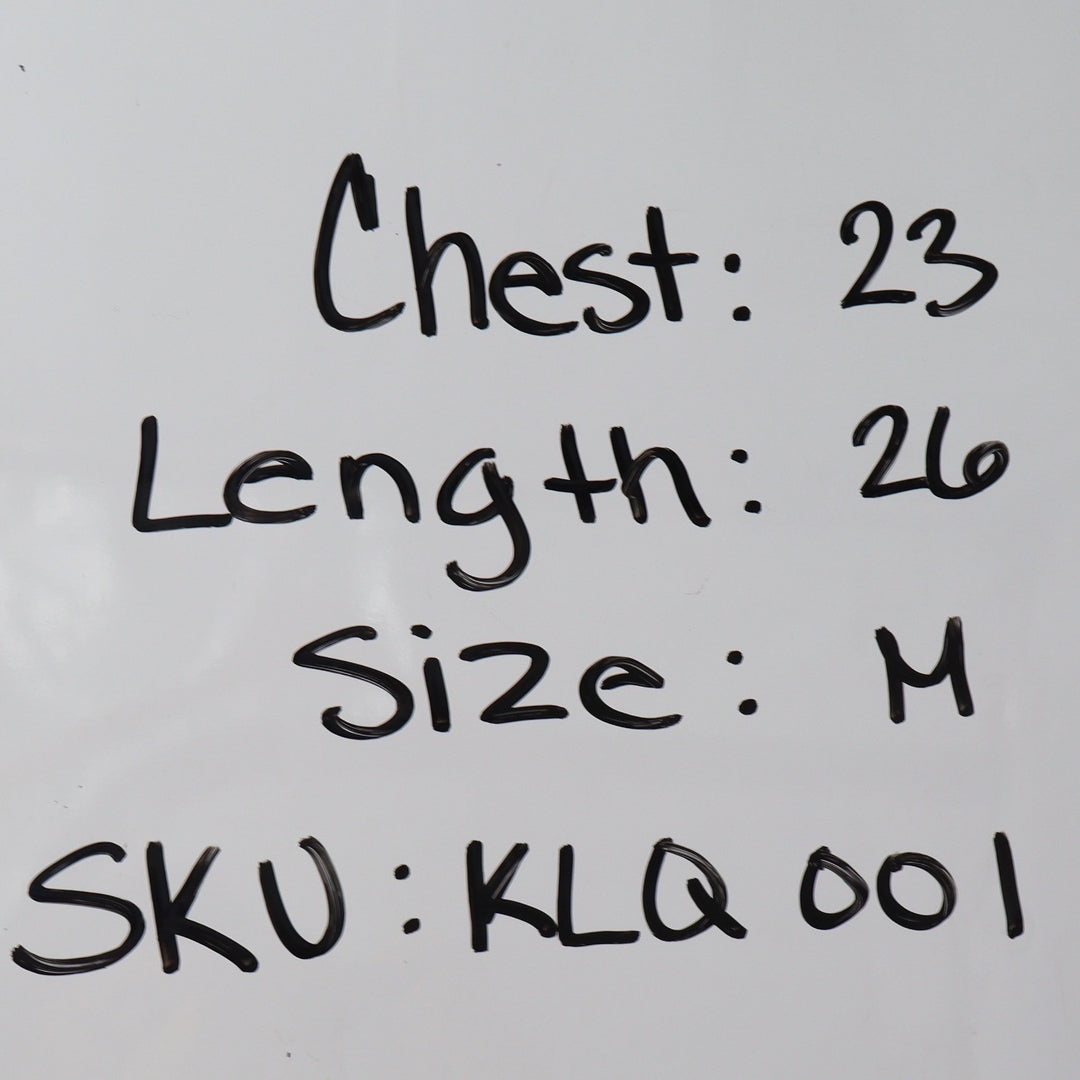 Chest: 23
Length: 26
Size: M
SKU: KLQ 001